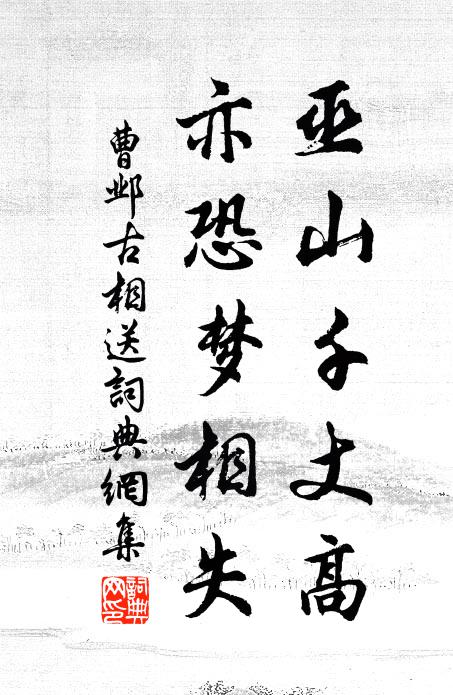 巫山千丈高
亦恐梦相失
曹邺古相送詞典網集
詞典网印